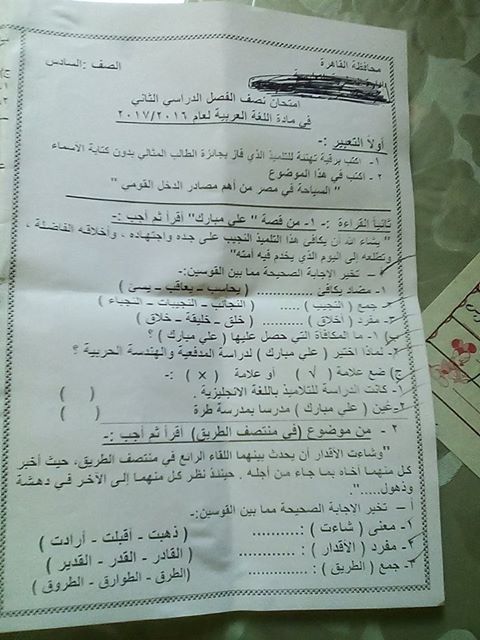 محافظة القاهرة
الصف :السادس
امتحان نصف الفصل الدراسي الثاني
في مادة اللغة العربية لعام ٢٠١٧/٢٠١٦
أولاً التعبير :-
١- اكتب برقية تهنئة للتلميذ الذي فاز بجائزة الطالب المثالي بدون كتابة الأسماء
٢- اكتب في هذا الموضوع
" السياحة في مصر من أهم مصادر الدخل القومي "
ثانياً القراءة :- ١- من قصة " علي مبارك" أقرأ ثم أجب :-
" يشاء الله أن يكافى هذا التلميذ النجيب على جده واجتهاده ، وأخلاقه الفاضلة ،
وتطلعه إلى اليوم الذي يخدم فيه أمته"
أ – تخير الاجابة الصحيحة مما بين القوسين:-
١- مضاد يكافئ ............ ( يحاسب ـ يعاقب ـ يسئ )
٢- جمع ( النجيب ) ..... ( النجائب ـ النجيبات ـ النجباء )
٣- مفرد ( أخلاق ) ....... ( خلق ـ خليقة ـ خلاق )
ب) ١- ما المكافأة التي حصل عليها ( علي مبارك ) ؟
٢- لماذا اختير ( علي مبارك ) لدراسة المدفعية والهندسة الحربية ؟
ج) ضع علامة ( √ ) أو علامة ( × ) :-
١- كانت الدراسة للتلاميذ باللغة الانجليزية . ( )
٢- عين ( علي مبارك ) مدرسا بمدرسة طرة ( )
٢ - من موضوع (في منتصف الطريق) أقرأ ثم أجب :-
"وشاءت الأقدار أن يحدث بينهما اللقاء الرائع في منتصف الطريق، حيث أخبر
كل منهما أخاه بما جاء من أجله . حينئذ نظر كل منهما إلى الآخر في دهشة
وذهول....."
أ – تخير الاجابة الصحيحة مما بين القوسين:-
١- معنى ( شاءت ) : .......... ( ذهبت - أقبلت - أرادت )
٢- مفرد ( الأقدار ) : .......... ( القادر - القدر - القدير )
٣- جمع ( الطريق ) : .......... (الطرق - الطوارق - الطروق )